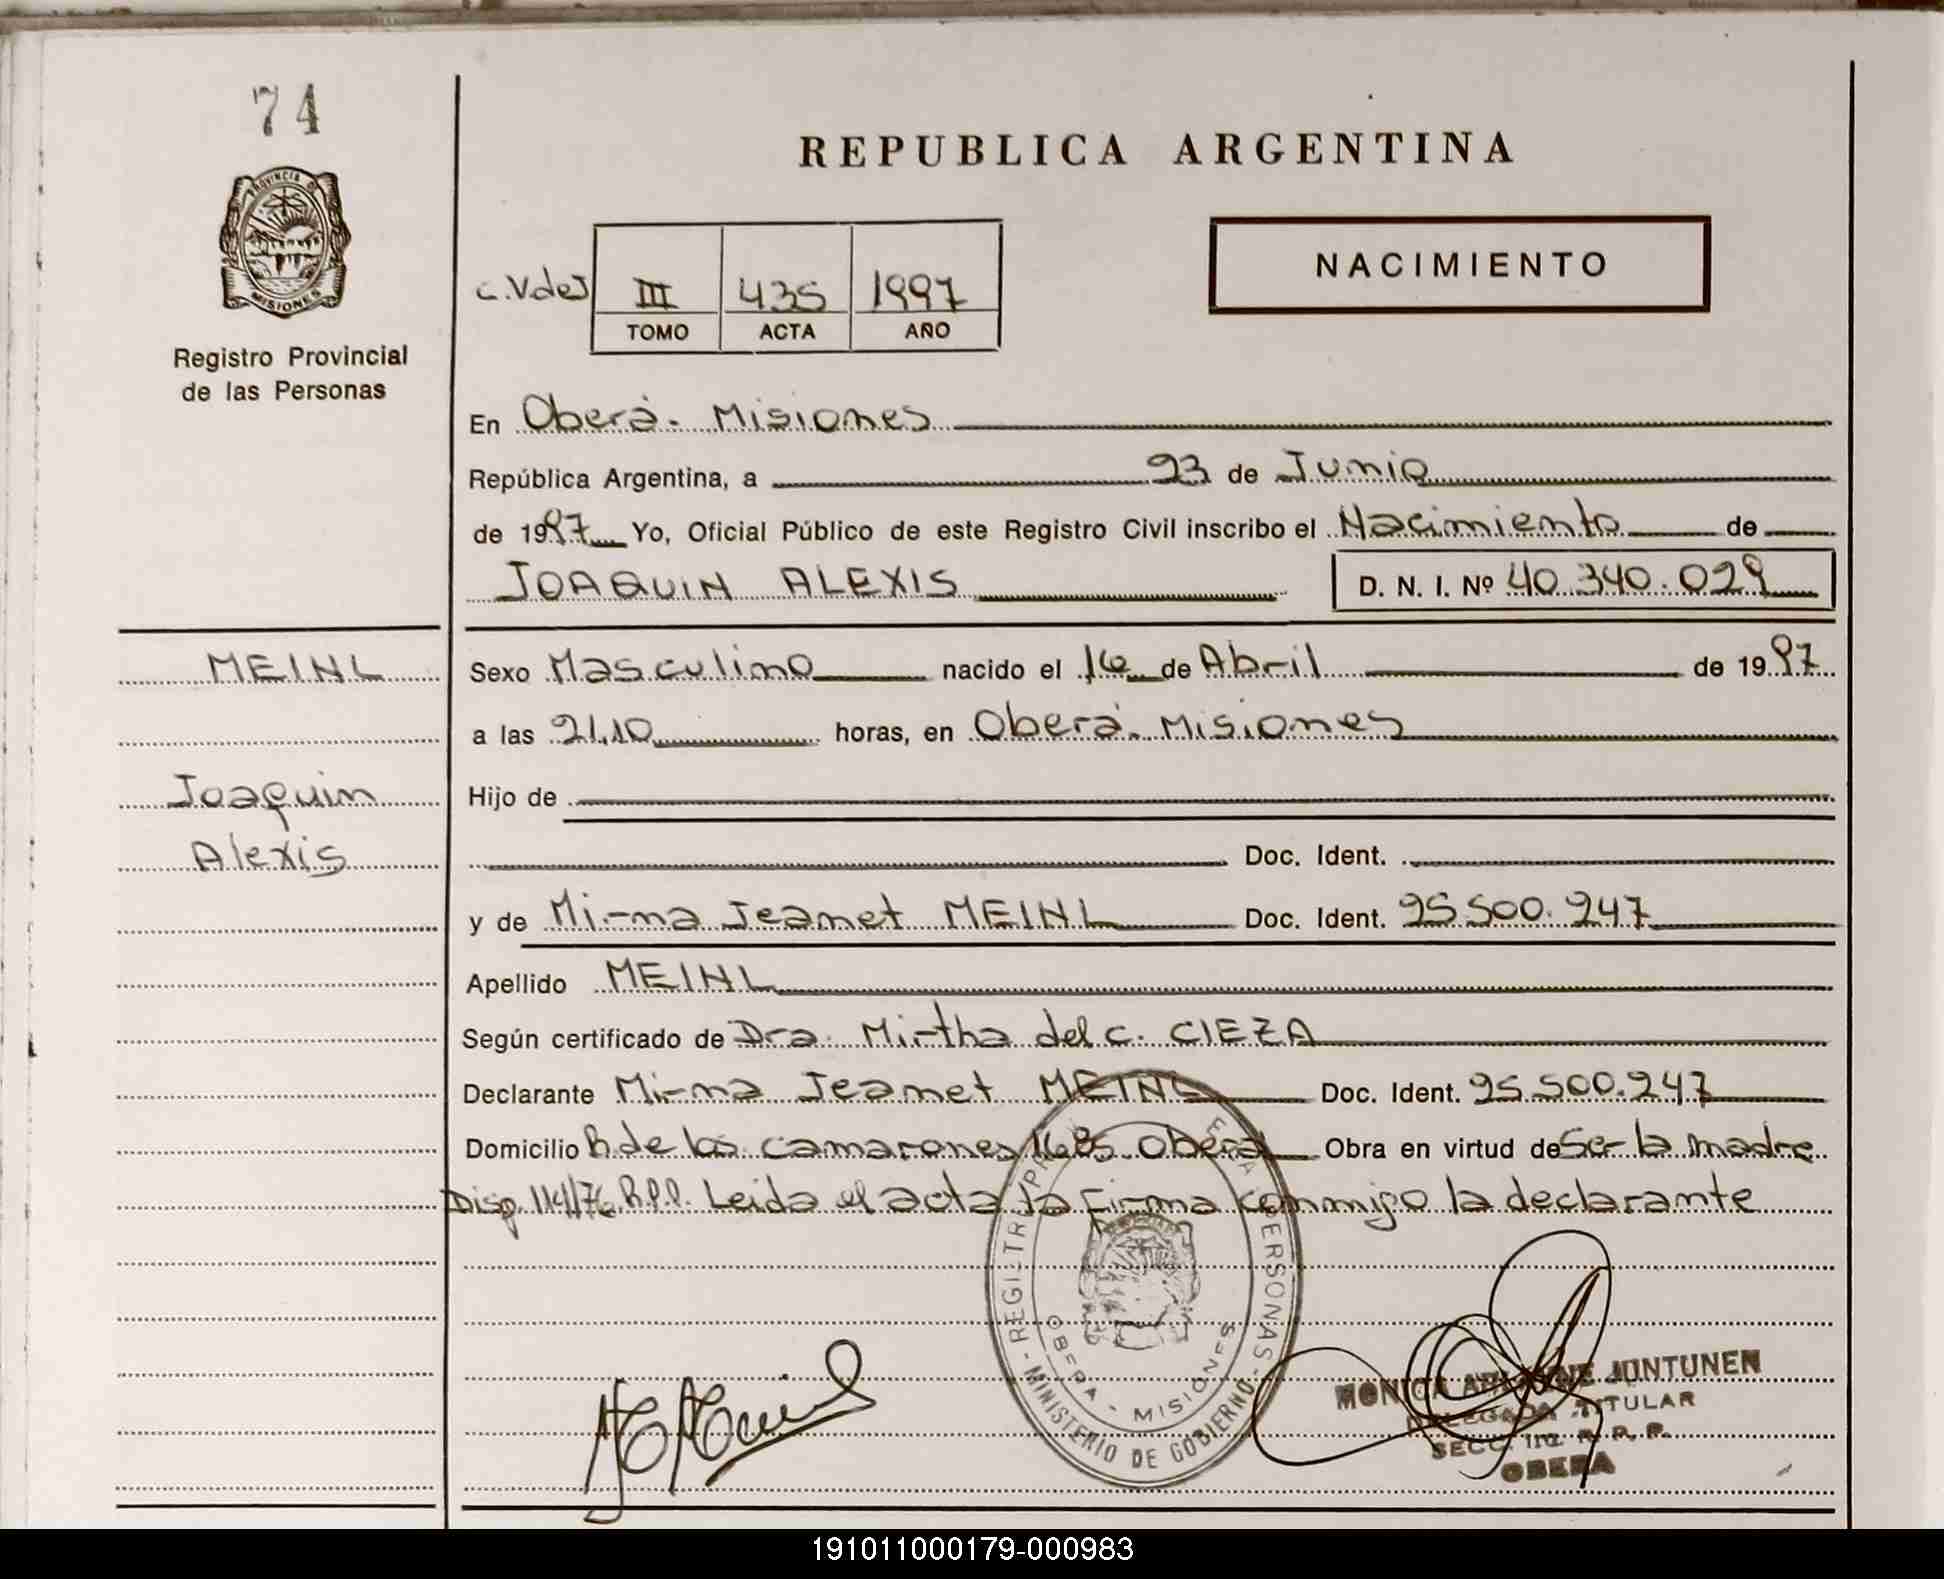 74
REPUBLICA ARGENTINA
PROVINCIA D
MISIONES
Registro Provincial
de las Personas
NACIMIENTO
c.VdeJ III 435 1997
TOMO ACTA AÑO
En Oberá. Misiones
República Argentina, a 23 de Junio
de 1997 Yo, Oficial Público de este Registro Civil inscribo el Nacimiento de
JOAQUIN ALEXIS D. N. I. Nº 40.340.029
MEINL
Joaquin
Alexis
Sexo Masculino nacido el 16 de Abril de 1997
a las 21,10 horas, en Oberá. Misiones
Hijo de
Doc. Ident.
y de Mirna Jeanet MEINL Doc. Ident. 25.500.247
Apellido MEINL
Según certificado de Dra. Mirtha del C. CIEZA
Declarante Mirna Jeanet MEINL Doc. Ident. 25.500.247
Domicilio B. de los camarones Oberá Obra en virtud de Ser la madre
Disp. 114/76 R.P.P. Leida el acta la firma conmigo la declarante
REGISTR PR E LA PERSONAS - MINISTERIO DE GOBIERNO -
OBERA - MISIONES
MONICA JUNTUNEN
DELEGADA TITULAR
SECC. R. P. P.
OBERA
191011000179-000983